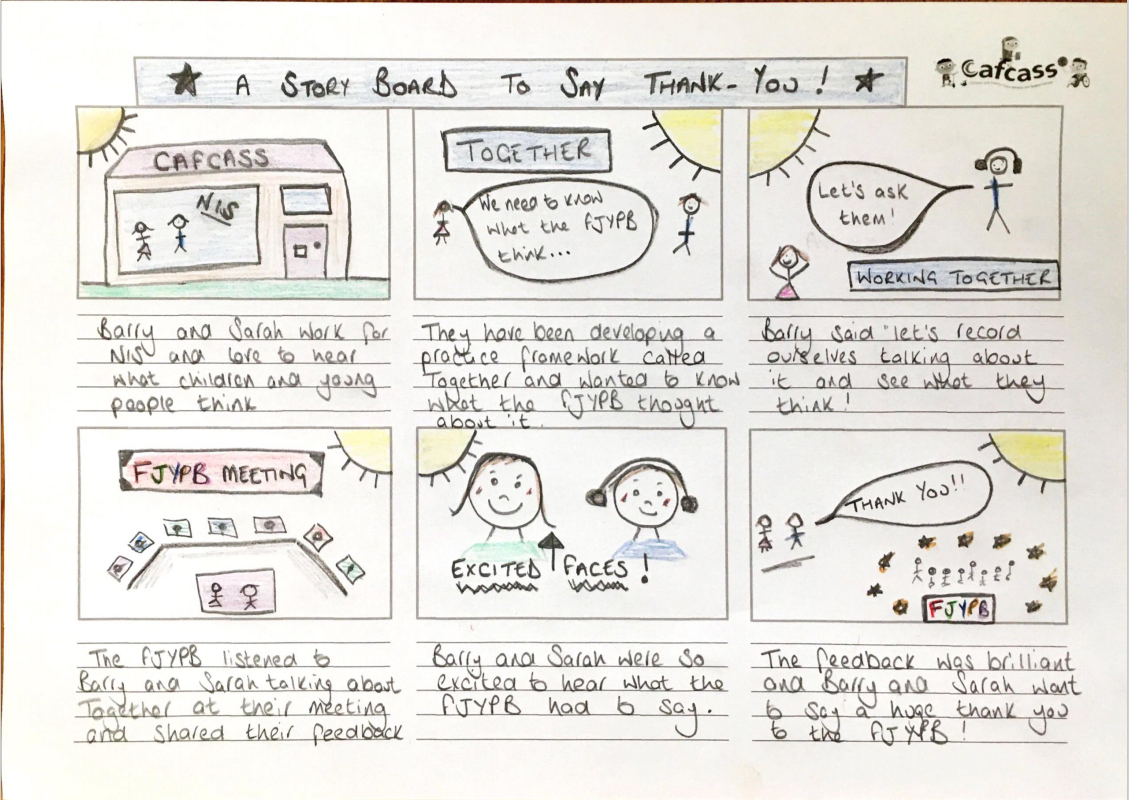 ★ A STORY BOARD TO SAY THANK-YOU! ★
Cafcass
CAFCASS
NIS
Barry and Sarah work for
NIS and love to hear
what children and young
people think
TOGETHER
We need to know
what the FJYPB
think...
They have been developing a
practice framework called
Together and wanted to know
what the FJYPB thought
about it.
Let's ask
them!
WORKING TOGETHER
Barry said "let's record
ourselves talking about
it and see what they
think!
FJYPB MEETING
The FJYPB listened to
Barry and Sarah talking about
Together at their meeting
and shared their feedback
EXCITED FACES!
Barry and Sarah were so
excited to hear what the
FJYPB had to say.
THANK YOU!!
FJYPB
The feedback was brilliant
and Barry and Sarah want
to say a huge thank you
to the FJYPB!